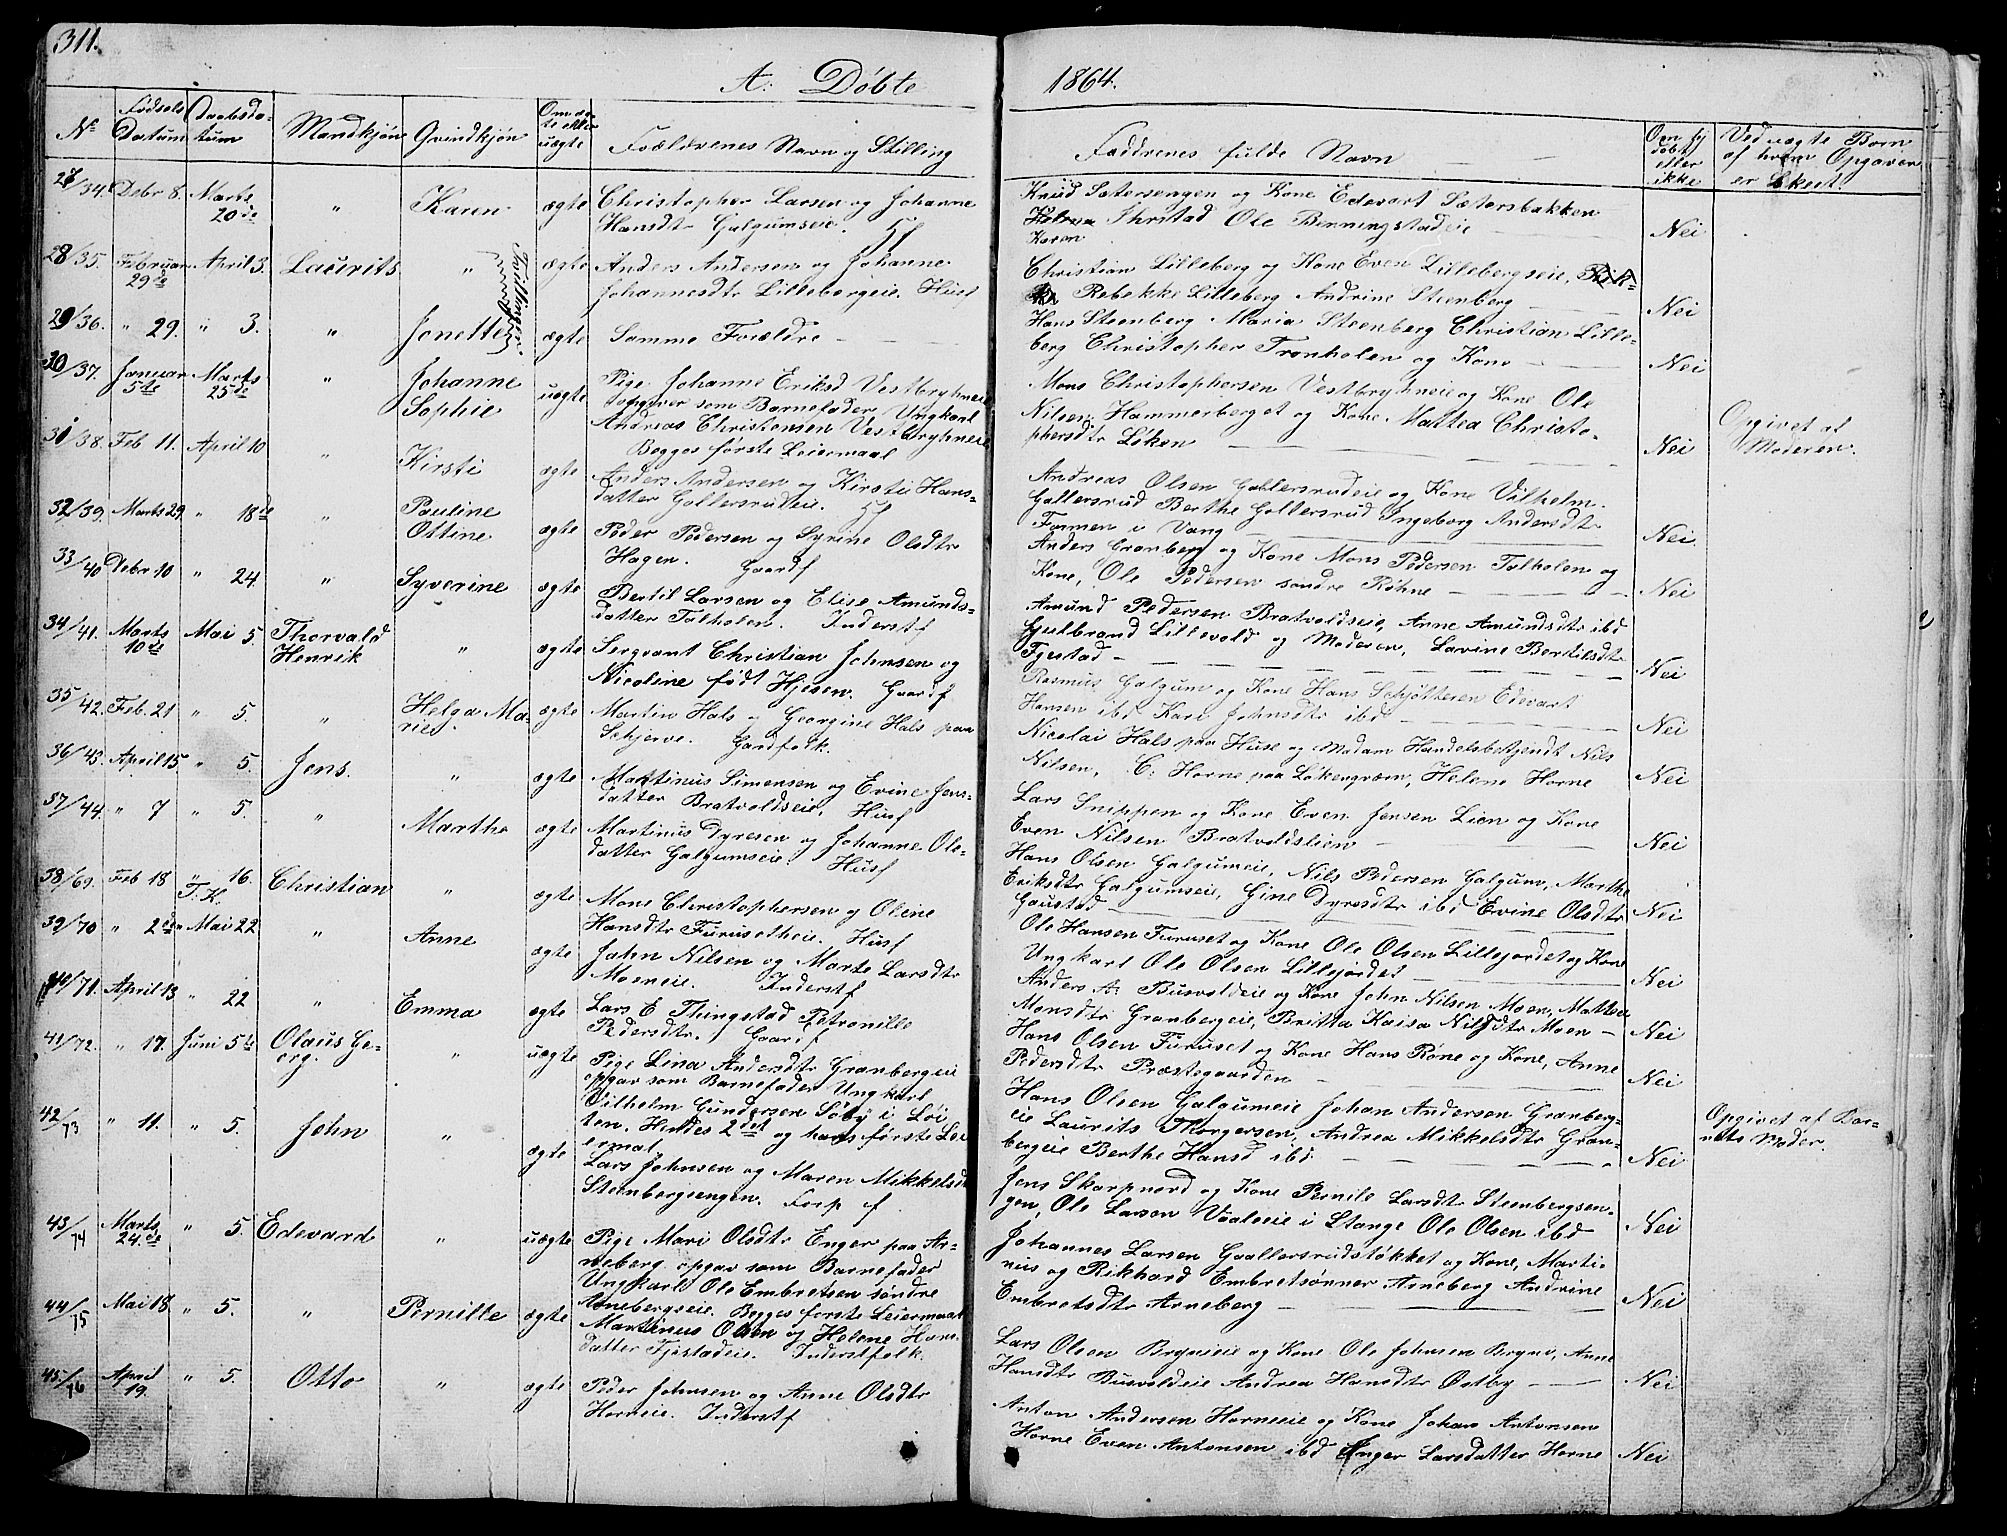 311.
A. Döbte
1864.
No
Födsels Datum
Daabsdatum
Mandkjön
Qvindkjön
Om ægte eller uægte
Forældrenes Navn og Stilling
Faddrenes fulde Navn
Om hj döbt eller ikke
Ved uægte Born af hvem Opgaven er Skeet.
27/34. Debr 8. Marts 20de " Karen ægte Christopher Larsen og Johanne
Hansdtr Galgumseie.
Knud Sætersengen og Kone Edevart Sætersbakken
Thrstad Ole Benningstadeie
Karen
Nei
28/35. Februar 29de April 3. Laurits " ægte Anders Andersen og Johanne
Johannesdtr Lillebergeie. Husf
Tvillinger
Christian Lilleberg og Kone Even Lillebergseie,
Rebekke Lilleberg Andrine Steenberg
Nei
29/36. " 29. " 3. " Jonette ægte Samme Forældre
Hans Steenberg Maria Steenberg Christian Lille-
berg Christopher Tronholen og Kone
Nei
30/37. Januar 5te Marts 25de " Johanne Sophie uægte Pige Johanne Eriksd Vestbryhneie
opgiver som Barnefader Ungkarl
Andreas Christensen Vestbryhneie
Begges förste Leiermaal
Mons Christophersen Vestbryhneie og Kone Ole
Nilsen Hammerberget og Kone Mattea Christo-
phersdtr Löken
Nei
Opgivet af
Moderen.
31/38. Feb 11. April 10 " Kirsti ægte Anders Andersen og Kirsti Hans-
datter Gollersrudeie.
Andreas Olsen Gollersrudeie og Kone Vilhelm
Gollersrud Berthe Gollersrud Ingeborg Andersdtr
Farmen i Vang
Nei
32/39. Marts 29. " 18de " Pauline Ottine ægte Peder Pedersen og Syrine Olsdtr
Hagen. Gaardf
Anders Granberg og Kone Mons Pedersen Talholen og
Kone, Ole Pedersen söndre Röhne
Nei
33/40 Debr 10 " 24. " Syverine ægte Bertil Larsen og Elise Amunds-
datter Talholen. Inderstf
Amund Pedersen Bratvoldseie, Anne Amundsdtr ibd
Gulbrand Lillevold og Moderen, Lavine Bertilsdtr
Fjestad
Nei
34/41. Marts 10de Mai 5. Thorvald Henrik " ægte Sergeant Christian Johnsen og
Nicoline född Hjesen. Gaardf
Rasmus Galgum og Kone Hans Schjötteren Edevart
Hansen ibd Kari Johnsdtr ibd
Nei
35/42. Feb. 21 " 5. " Helga Ma-
rie. ægte Martin Hals og Georgine Hals paa
Schjerve. Gardfolk.
Nicolai Hals paa Huse og Madam Handelsbetjendt Nils
Nilsen, C. Horne paa Lökengræm, Helene Horne
Nei
36/43. April 15 " 5. Jens. " ægte Martinus Simensen og Evine Jens-
datter Bratvoldseie, Husf
Lars Snippen og Kone Even Jensen Lien og Kone
Even Nilsen Bratvoldslien
Nei
37/44. " 7 " 5. " Marthe ægte Martinus Dyresen og Johanne Ole-
datter Galgumseie Husf
Hans Olsen Galgumeie, Nils Pedersen Galgum, Marthe
Eriksdtr Galgumseie, Gine Dyresdtr ibd Evine Olsdtr
Gaustad
Nei
38/69. Feb 18 " 16. T.K. Christian " ægte Mons Christophersen og Oleine
Hansdtr Furusetheie. Husf
Ole Hansen Furuset og Kone Ole Olsen Lillejordet og Kone
Ungkarl Ole Olsen Lillejordet
Nei
39/70 " 2de " Mai 22 " Anne ægte John Nilsen og Marte Larsdtr
Moeneie. Inderstf
Anders A. Busvoldeie og Kone John Nilsen Moen, Mattea
Monsdtr Granbergeie, Britta Kaisa Nilsdtr Moen
Nei
40/71. April 13 " 22 " Emma ægte Lars E Thingstad Petronille
Pedersdtr. Gaardf
Hans Olsen Furuset og Kone Hans Röne og Kone, Anne
Pedersdtr Præstegaarden
Nei
41/72. " 17. Juni 5te Olaus Ge-
org. " uægte Pige Lina Andersdtr Granbergeie
opgav som Barnefader Ungkarl
Vilhelm Gundersen Söby i Löi
ten. Hendes 2det og hans förste Lei
ermal.
Hans Olsen Galgumeie Johan Andersen Granberg-
eie Laurits Thorgersen, Andrea Mikkelsdtr Gran-
bergeie Berthe Hansd ibd.
Nei
Opgivet af Bar-
nets Moder.
42/73 " 11. " 5. John " ægte Lars Johnsen og Maren Mikkelsd
Steenbergsengen. Forp f.
Jens Skarpnord og Kone Pernile Larsdtr Steenbergsen-
gen, Ole Larsen Vaaleeie i Stange Ole Olsen ibd
Nei
43/74 Marts 24de " 5. Edevard " uægte Pige Mari Olsdtr Enger paa Ar-
neberg opgav som Barnefader
Ungkarl Ole Embretsen söndre
Arnebergseie. Begges förste Leiermaal
Johannes Larsen Gaallersrudstökket og Kone, Marti-
nius og Rikhard Embretsönner Arneberg Andrine
Embretsdtr Arneberg
Nei
44/75 Mai 18. " 5. " Pernille ægte Martinus Olsen og Helene Hans
datter Fjestadeie. Inderstfolk.
Lars Olsen Bryneie og Kone Ole Johnsen Bryne, Anne
Hansdtr Busvoldeie Andrea Hansdtr Östby
Nei
45/76 April 19. " 5. Otto " ægte Peder Johnsen og Anne Olsdtr
Horneie. Inderstf
Anton Andersen Horneeie og Kone Johan Antonsen
Horne Even Antonsen ibd Inger Larsdatter Horne
Nei